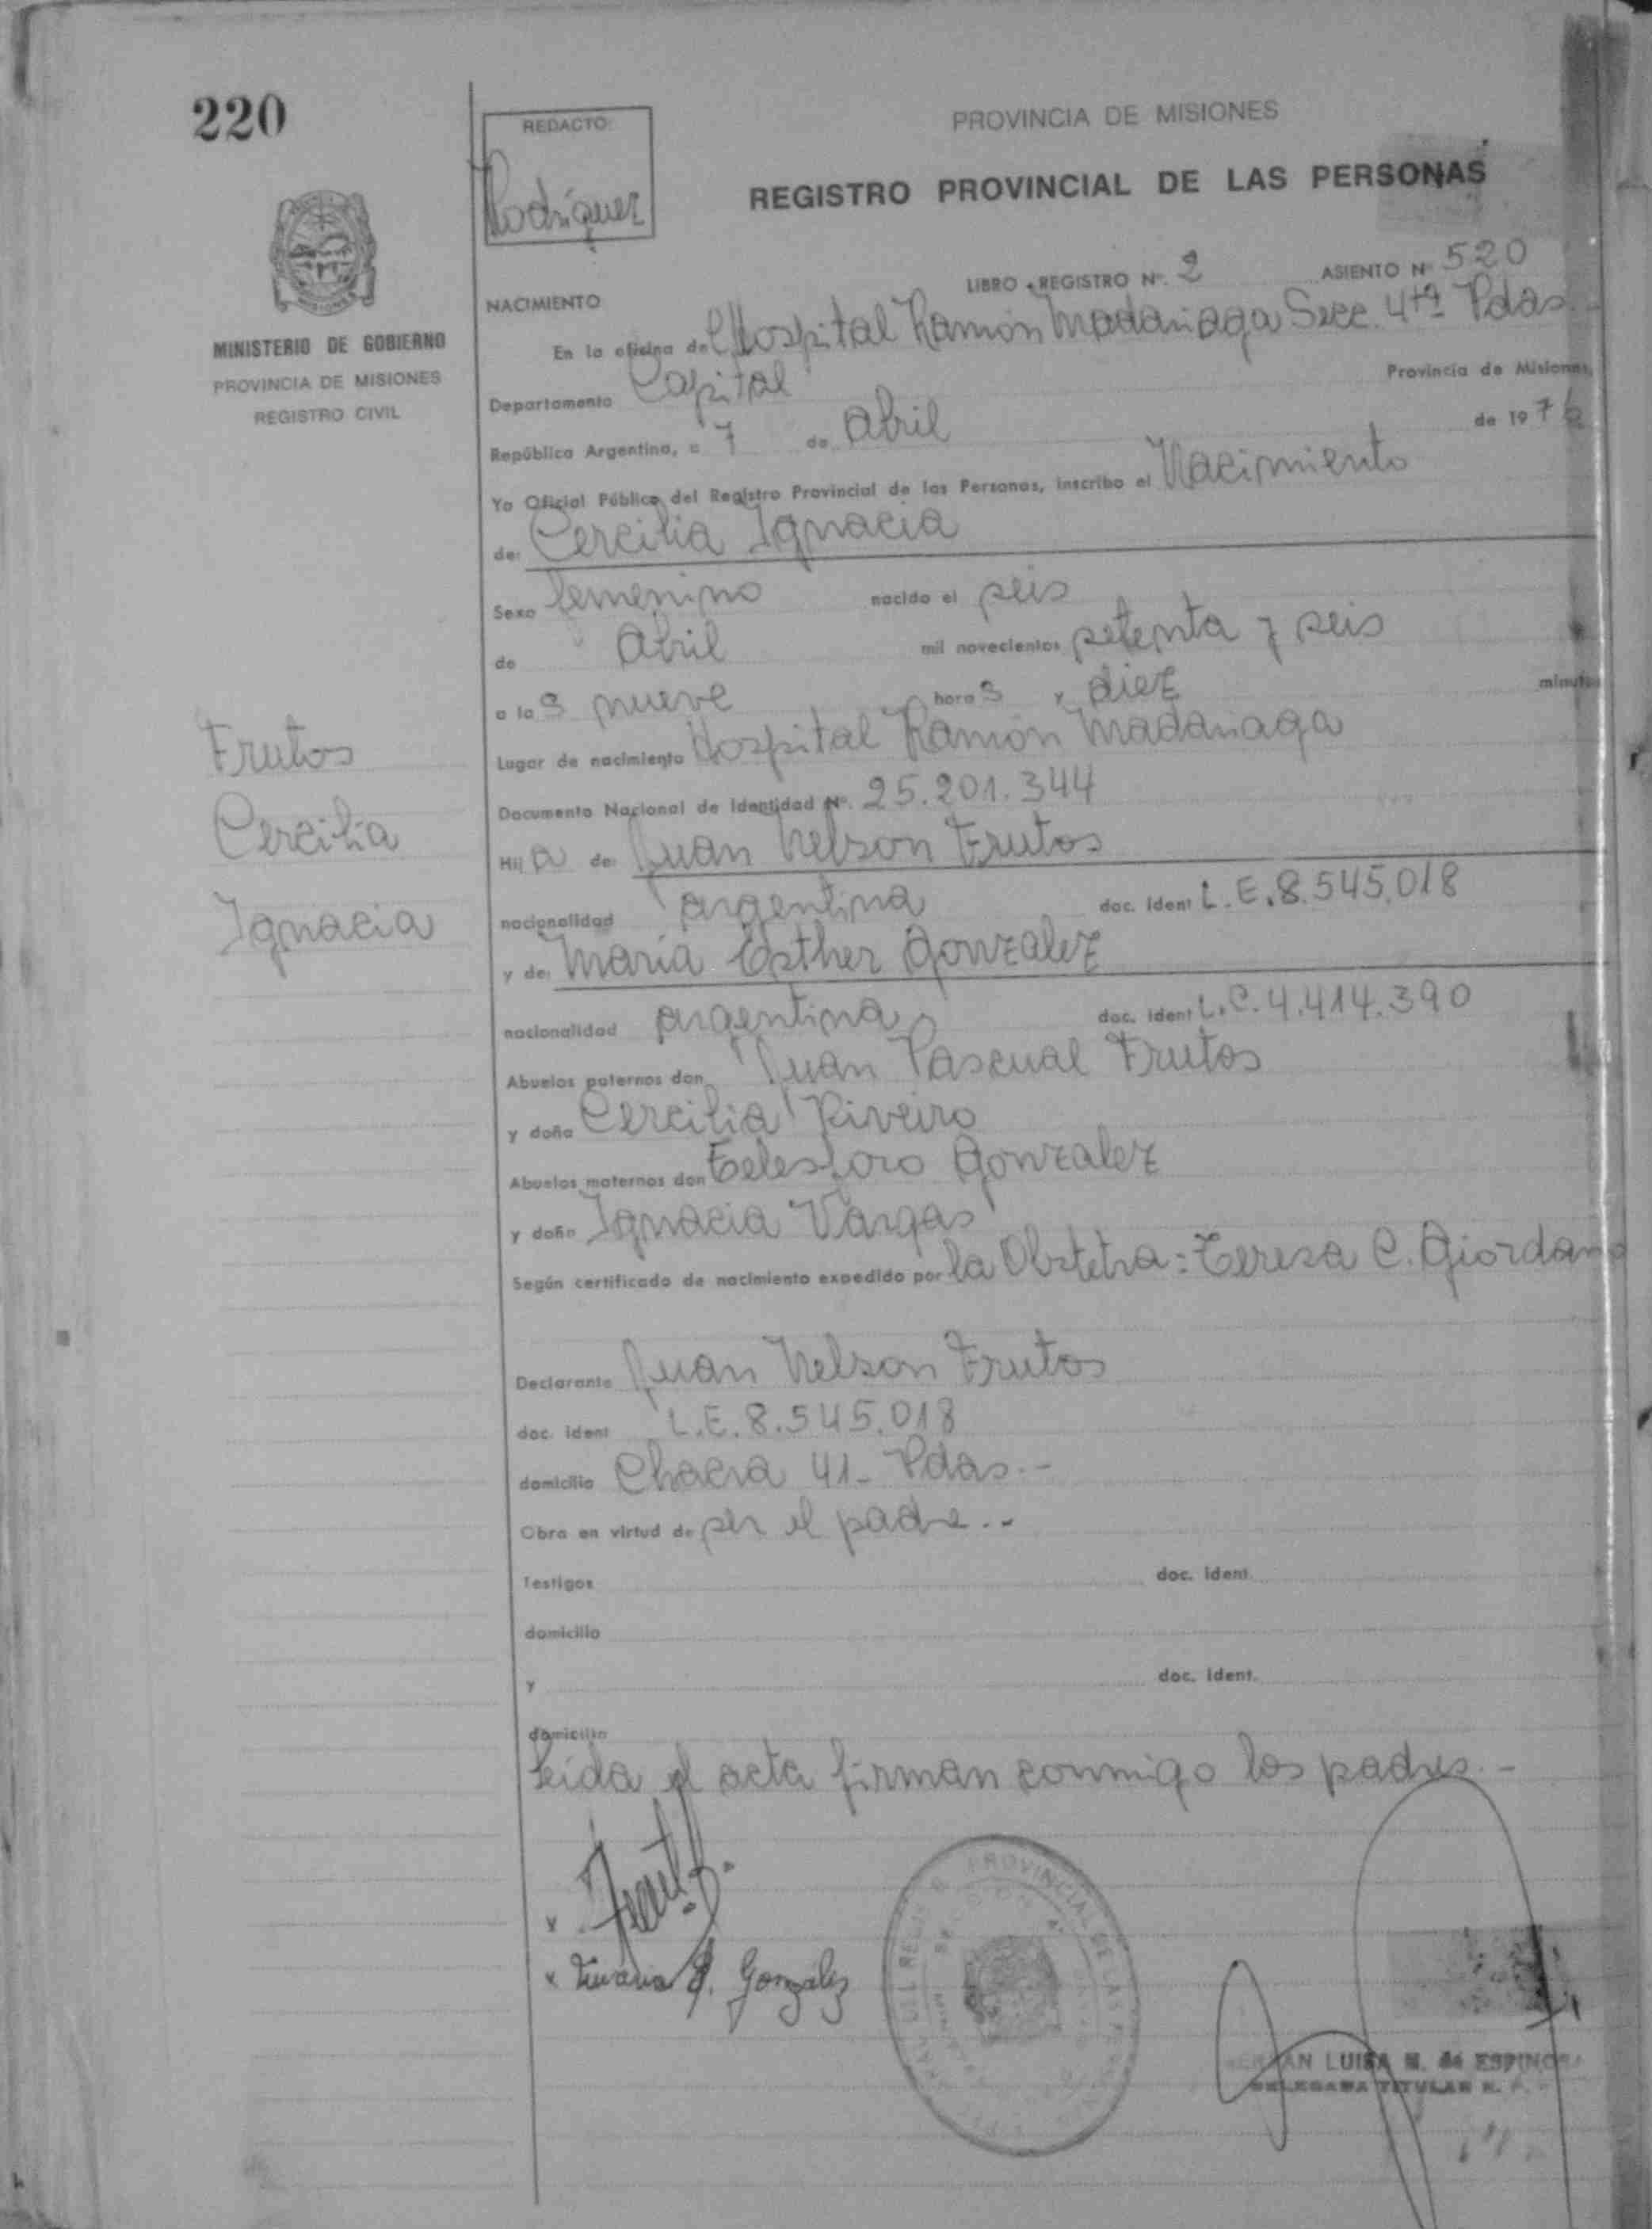 220
REDACTO:
Rodríguez
PROVINCIA DE MISIONES
REGISTRO PROVINCIAL DE LAS PERSONAS
LIBRO - REGISTRO Nº. 2 ASIENTO Nº 520
MINISTERIO DE GOBIERNO
PROVINCIA DE MISIONES
REGISTRO CIVIL
NACIMIENTO
En la oficina del Hospital Ramón Madariaga Secc. 4ta Pdas.-
Departamento Capital Provincia de Misiones,
República Argentina, a 7 de Abril de 1976
Yo Oficial Público del Registro Provincial de las Personas, inscribo el Nacimiento
de: Cercilia Ignacia
Sexo femenino nacido el seis
de Abril mil novecientos setenta y seis
a las nueve horas y diez minutos
Lugar de nacimiento Hospital Ramón Madariaga
Documento Nacional de Identidad Nº. 25.201.344
Frutos
Cercilia
Ignacia
Hija de: Juan Nelson Frutos
nacionalidad argentina doc. ident L.E.8.545.018
y de: María Esther Gonzalez
nacionalidad argentina doc. ident L.C.4.414.390
Abuelos paternos don Juan Pascual Frutos
y doña Cercilia Riveiro
Abuelos maternos don Telesforo Gonzalez
y doña Ignacia Vargas
Según certificado de nacimiento expedido por la Obstetra: Teresa C. Giordano
Declarante Juan Nelson Frutos
doc. ident L.E.8.545.018
domicilio Chacra 41- Pdas.-
Obra en virtud de ser el padre..-
Testigos doc. ident.
domicilio
y doc. ident.
domicilio
Leida el acta firman conmigo los padres.-
x Gonzalez
PROVINCIAL DE LAS
LUISA M. de ESPINOSA
DELEGADA TITULAR